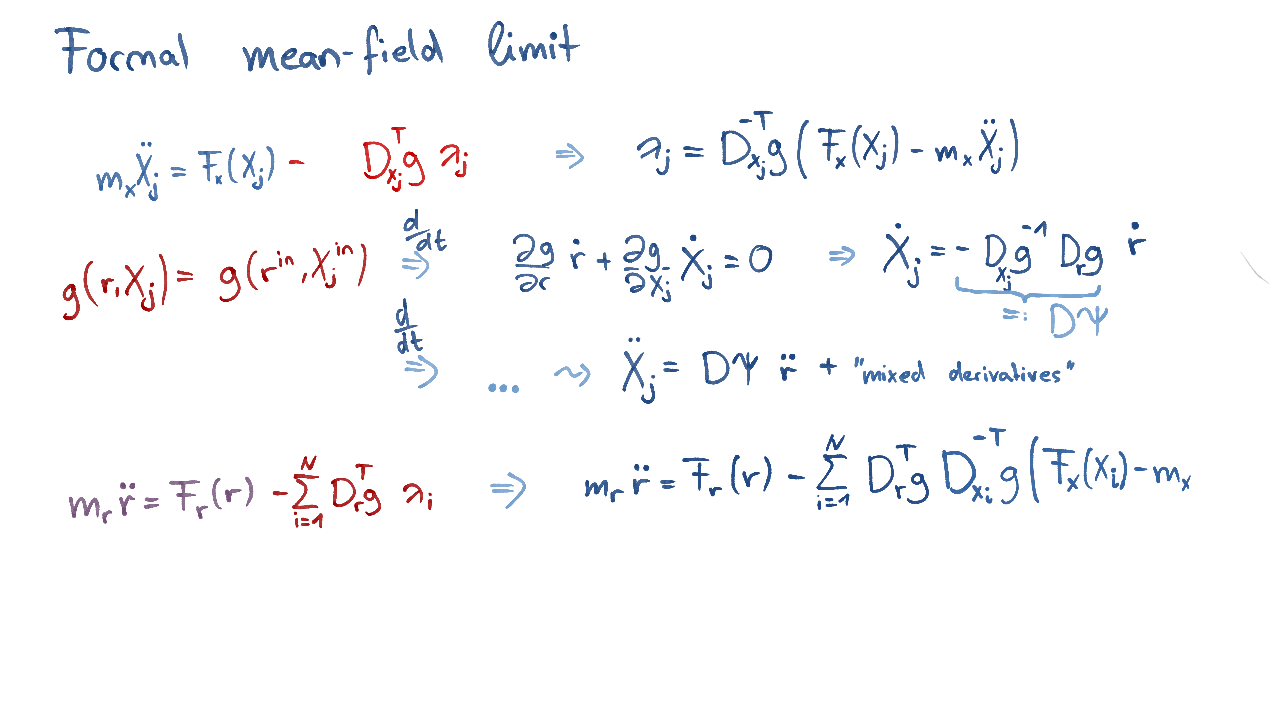 Formal mean-field limit
m_x Ẍ_j = F_x(X_j) - D_{x_j}^T g λ_j ⇒ λ_j = D_{x_j}^{-T} g ( F_x(X_j) - m_x Ẍ_j )
g(r, X_j) = g(r^{in}, X_j^{in}) d/dt ⇒ ∂g/∂r ṙ + ∂g/∂X_j Ẋ_j = 0 ⇒ Ẋ_j = - D_{x_j} g^{-1} D_r g ṙ
=: DΨ
d/dt ⇒ ... ⇝ Ẍ_j = DΨ r̈ + "mixed derivatives"
m_r r̈ = F_r(r) - ∑_{i=1}^N D_r^T g λ_i ⇒ m_r r̈ = F_r(r) - ∑_{i=1}^N D_r^T g D_{x_i}^{-T} g ( F_x(X_i) - m_x